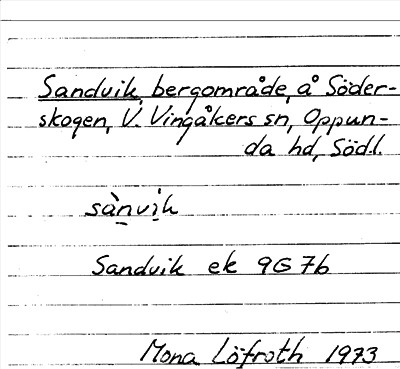 Sandvik, bergområde, å Söder-
skogen, V. Vingåkers sn, Oppun-
da hd, Södl.
sànvik
Sandvik ek 9G 7b
Mona Löfroth 1973